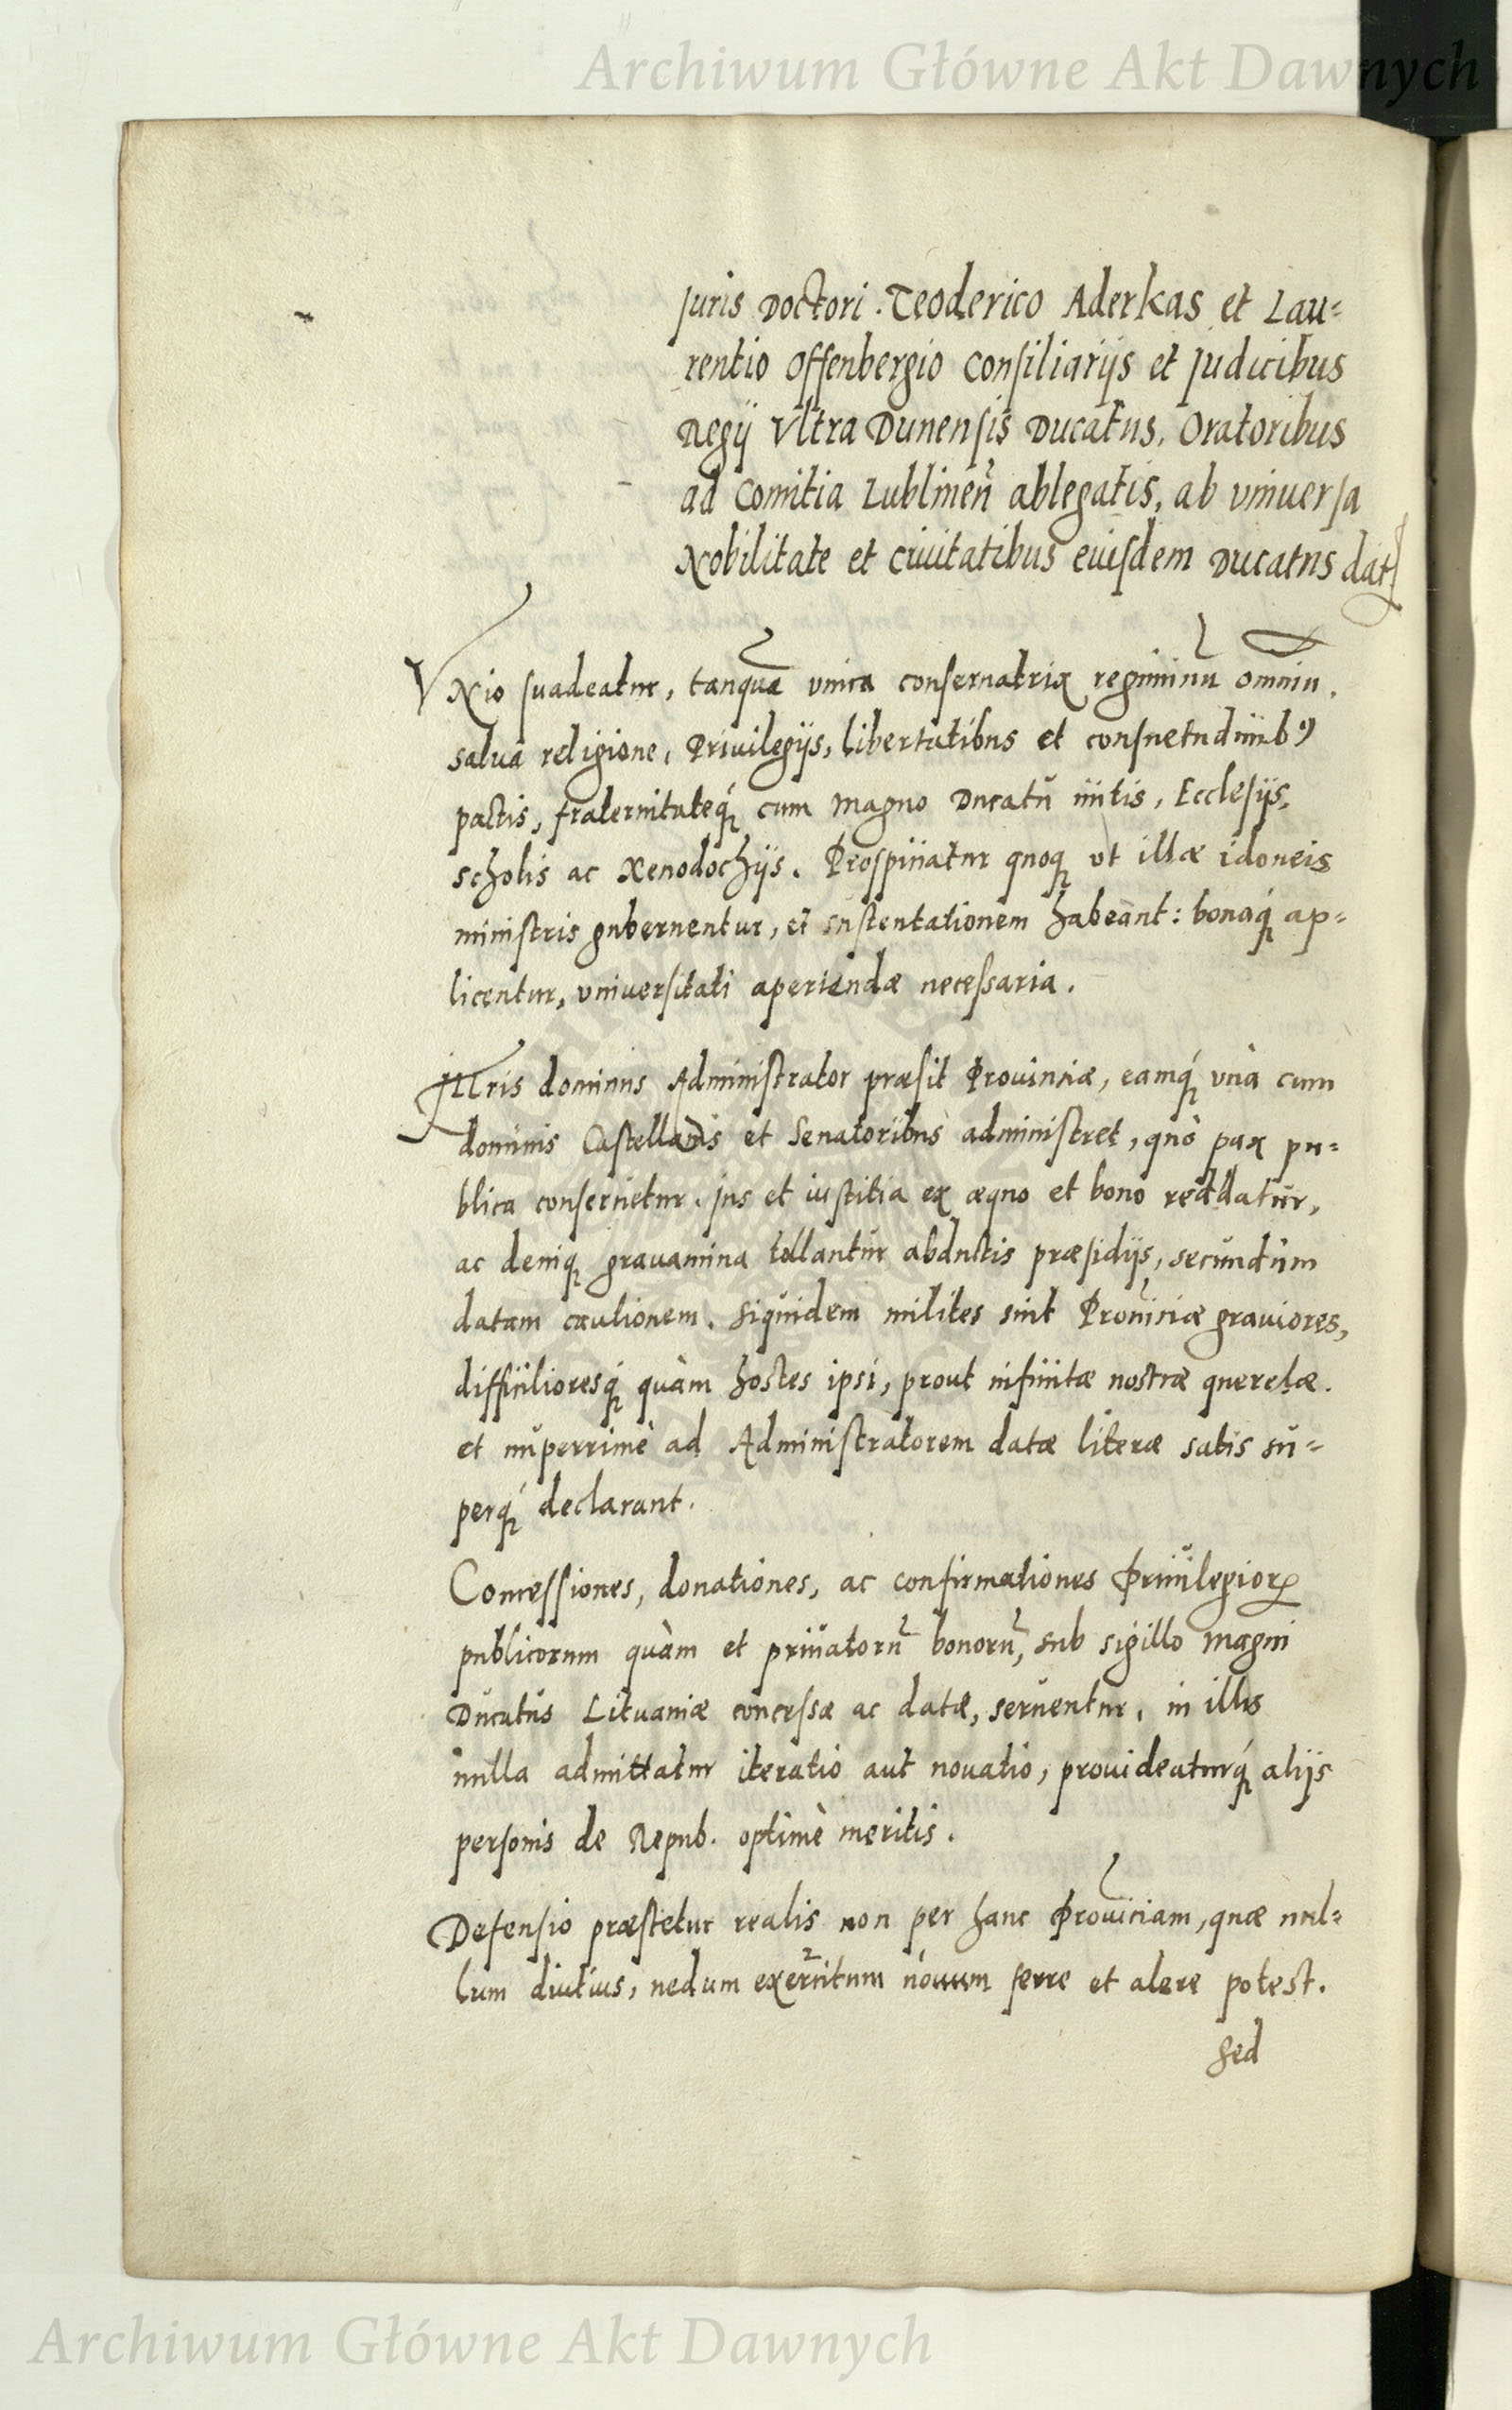 Archiwum Główne Akt Dawnych
Juris Doctori. Teoderico Aderkas et Lau=
rentio Offenbergio Consiliarijs et Judicibus
Regij Vltra Dunensis Ducatus, Oratoribus
ad Comitia Lublineñ ablegatis, ab vniuersa
Nobilitate et Ciuitatibus euisdem Ducatus dat
VNio suadeatur, tanquã vnica conseruatrix regiminũ omniũ,
salua religione, Priuilegijs, libertatibus et consuetudinib9
pactis, fraternitateq́ cum Magno Ducatũ initis, Ecclesijs,
scholis ac Xenodochijs. Prospiciatur quoq vt illæ idoneis
ministris gubernentur, et sustentationem habeant: bonaq́ ap=
licentur, vniuersitati aperiendæ necessaria.
Illris dominus Administrator præsit Prouinciæ, eamq́ vnà cum
dominis Castellanis et Senatoribus administret, quò pax pu=
blica conseruetur. Jus et iustitia ex æquo et bono reddatur,
ac deniq grauamina tollantur abductis præsidijs, secundùm
datam cautionem. Siquidem milites sint Prouinciæ grauiores,
difficilioresq́ quàm hostes ipsi, prout infinitæ nostræ querelæ.
et nuperrimè ad Administratorem datæ literæ satis su=
perq́ declarant.
Concessiones, donationes, ac confirmationes Priuilegior
publicorum quàm et priuatorũ bonorũ, sub sigillo Magni
Ducatus Lituaniæ concessæ ac datæ, seruentur, in illis
nulla admittatur iteratio aut nouatio, prouideaturq́ alijs
personis de Repub. optimè meritis.
Defensio præstetur realis non per hanc Prouinciam, quæ nul=
lum diutius, nedum exercitum nouum ferre et alere potest.
Sed
Archiwum Główne Akt Dawnych